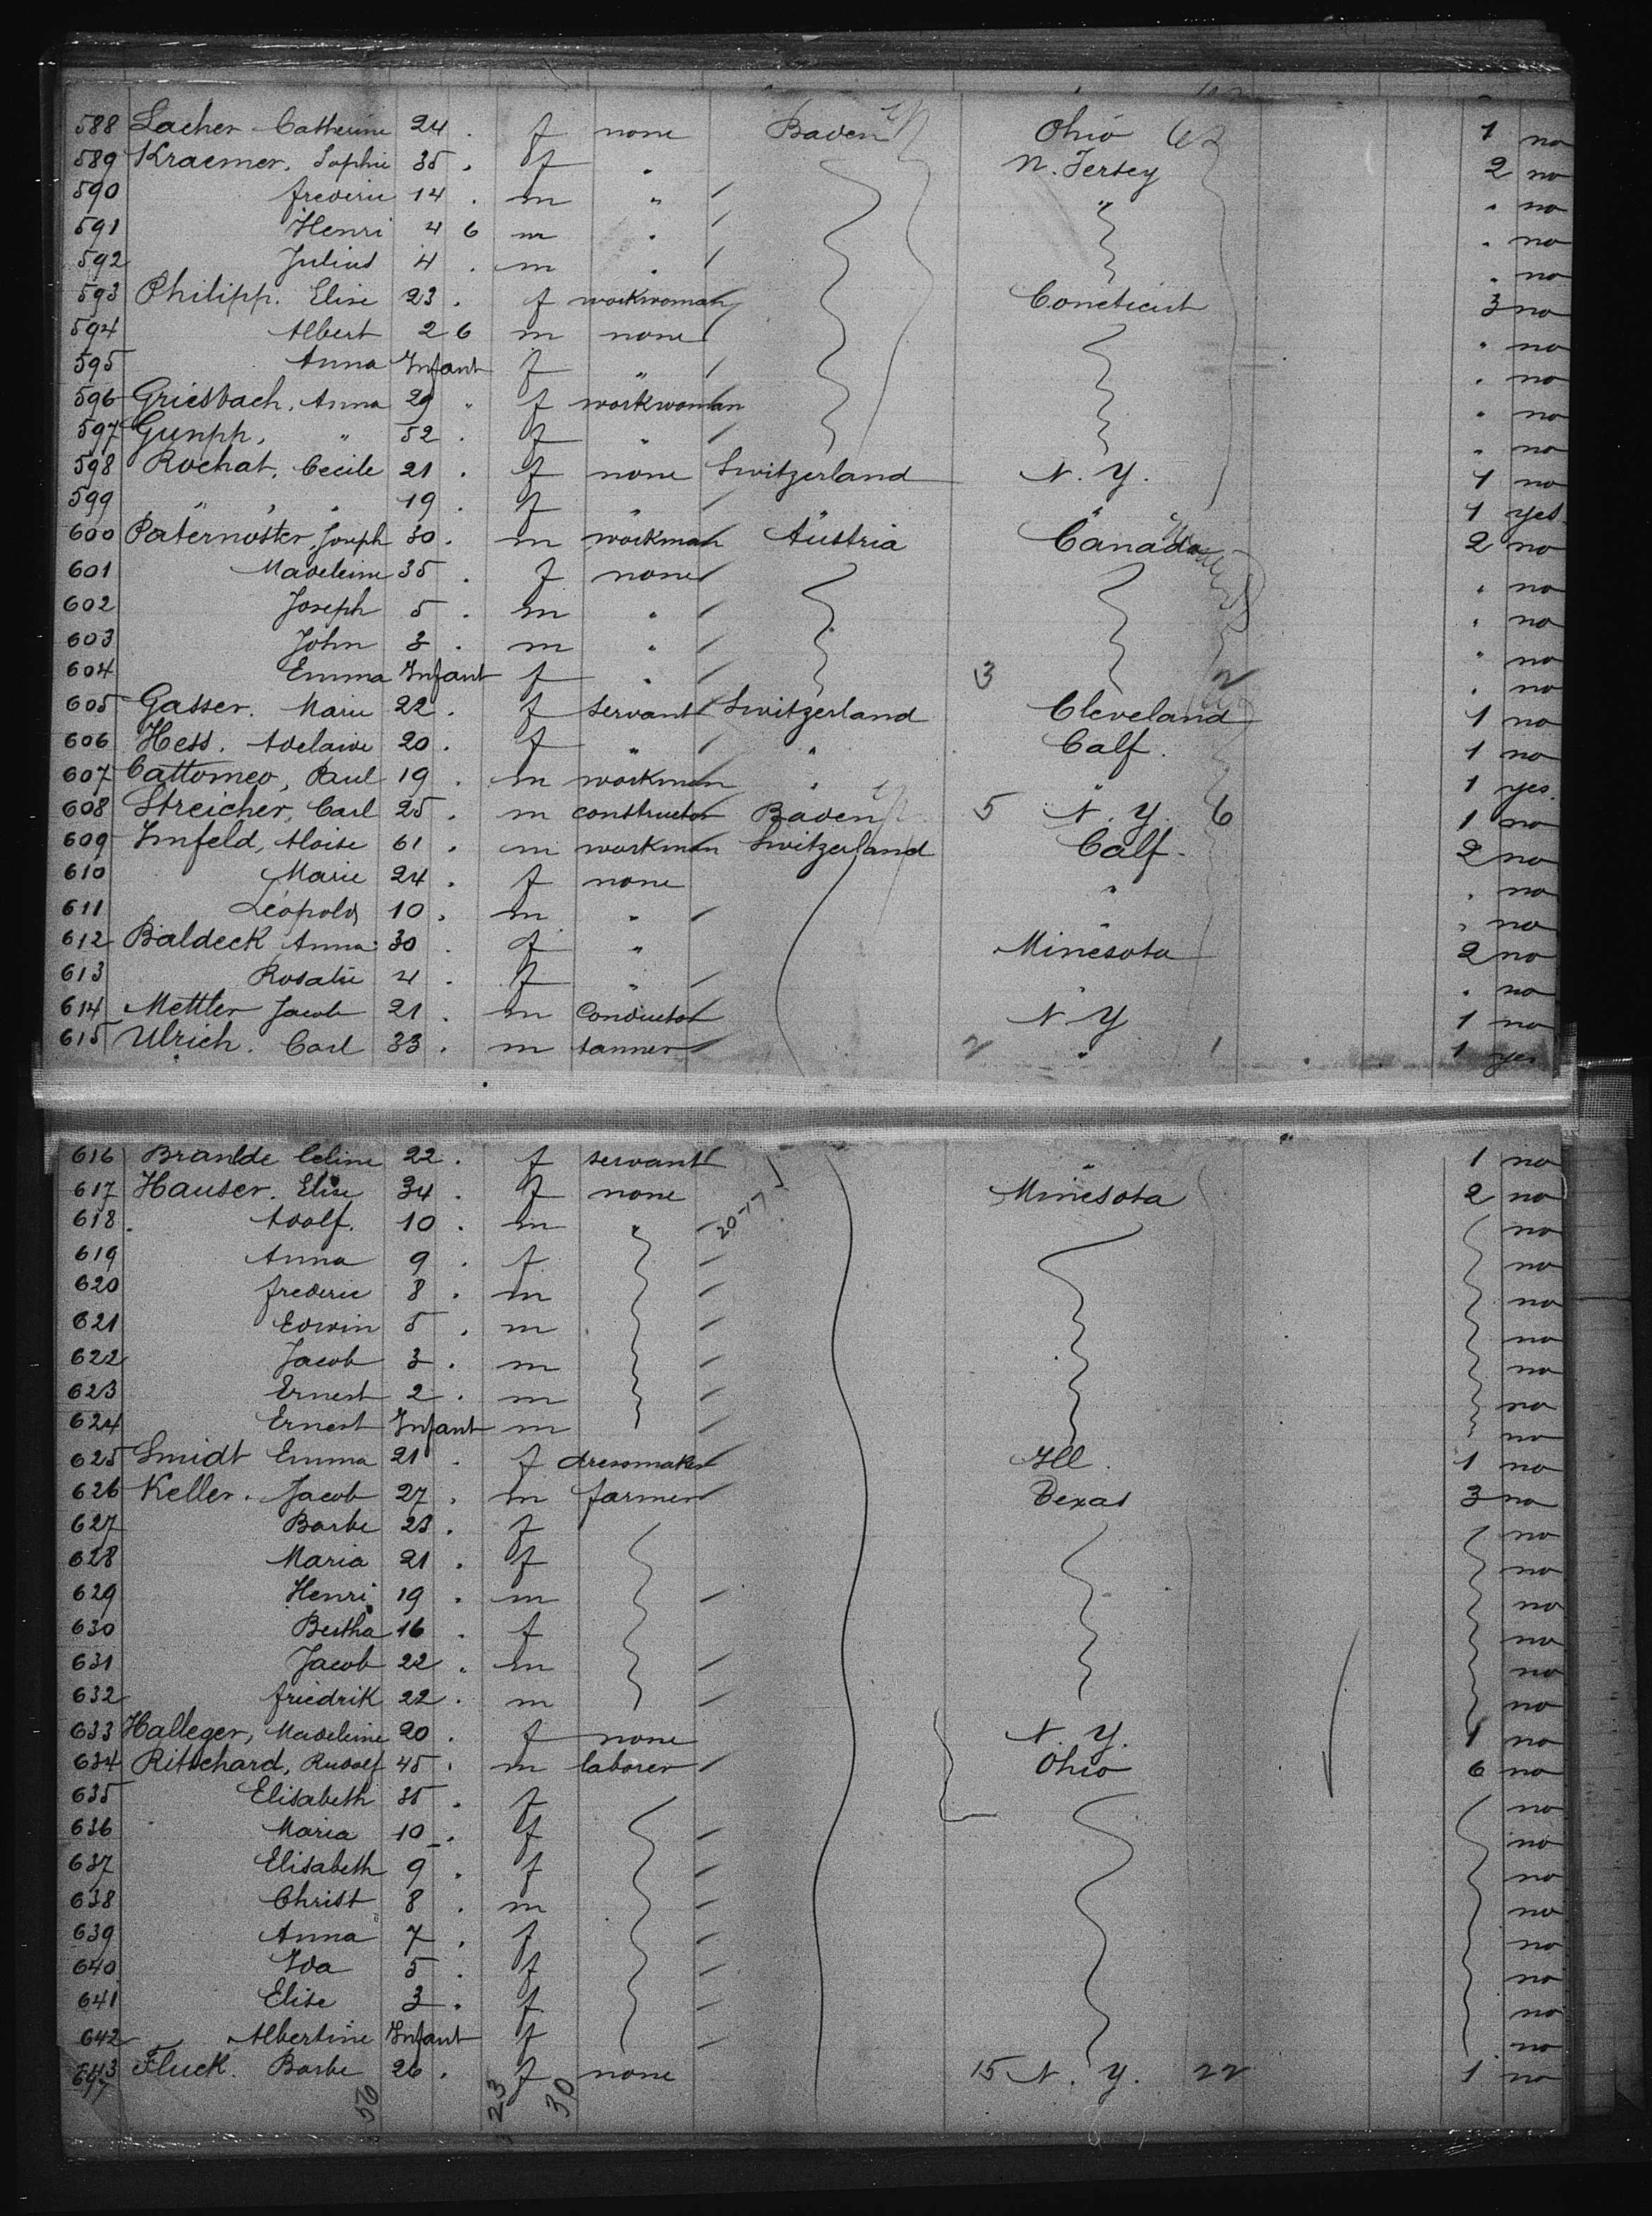 588 Lacher Catherine 24 . f none Baden Ohio 62 1 no
589 Kraemer, Sophie 35 . f " N. Jersey 2 no
590 frederic 14 . m " " " no
591 Henri 4 6 m " " no
592 Julius 4 . m " " no
593 Philipp. Elise 23 . f workwoman Coneticut 3 no
594 Albert 2 6 m none " no
595 Anna Infant f " " no
596 Griesbach, Anna 29 " f workwoman " no
597 Gunpp, " 52 . f " " no
598 Rochat, Cecile 21 . f none Switzerland N. Y. 1 no
599 " " " 19 . f " " " 1 yes
600 Paternoster, Joseph 30 . m workman Austria Canada 2 no
601 Madeleine 35 . f none " no
602 Joseph 5 . m " " no
603 John 3 . m " " no
604 Emma Infant f " 3 2 " no
605 Gasser. Marie 22 . f servant Switzerland Cleveland 1 no
606 Hess. Adelaide 20 . f " " Calf. 1 no
607 Cattomeo, Paul 19 . m workman " " 1 yes.
608 Streicher, Carl 25 . m constructor Baden 5 N. Y. 6 1 no
609 Imfeld, Aloise 61 . m workman Switzerland Calf. 2 no
610 Marie 24 . f none " " no
611 Léopold 10 . m " " " no
612 Baldeck Anna 30 . f " Minesota 2 no
613 Rosalie 4 . f " " " no
614 Mettler Jacob 21 . m Conductor N Y 1 no
615 Ulrich. Carl 33 . m tanner 2 " 1 1 yes
616 Branlde Celine 22 . f servant " 1 no
617 Hauser. Elise 34 . f none Minesota 2 no
618 Adolf. 10 . m " 20-17 no
619 Anna 9 . f no
620 frederic 8 . m no
621 Edwin 5 . m no
622 Jacob 3 . m no
623 Ernest 2 . m no
624 Ernest Infant m no
625 Smidt Emma 21 . f dressmaker Ill. 1 no
626 Keller. Jacob 27 . m farmer Texas 3 no
627 Barbe 23 . f no
628 Maria 21 . f no
629 Henri 19 . m no
630 Bertha 16 . f no
631 Jacob 22 . m no
632 friedrik 22 . m no
633 Halleger, Madeleine 20 . f none N. Y. 1 no
634 Ritschard, Rudolf 45 . m laborer Ohio 6 no
635 Elisabeth 35 . f no
636 Maria 10 . f no
637 Elisabeth 9 . f no
638 Christ 8 . m no
639 Anna 7 . f no
640 Ida 5 . f no
641 Elise 3 . f no
642 Albertine Infant f no
643 Fluck. Barbe 26 . f none 15 N. Y. 22 1 no
56 23 30